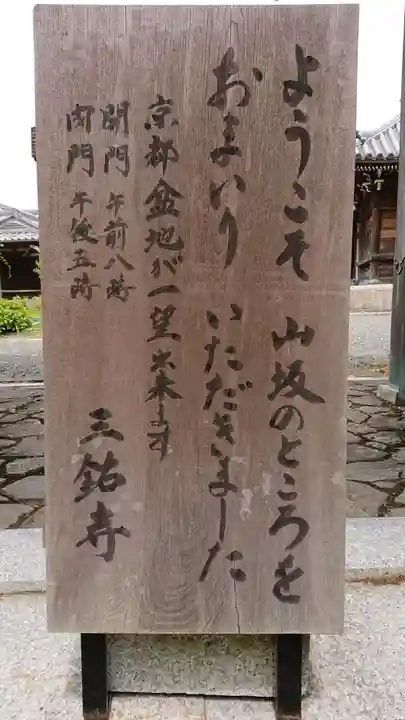 ようこそ 山坂のところを
おまいり いただきました
京都盆地が一望出来ます
開門 午前八時
閉門 午後五時
三鈷寺